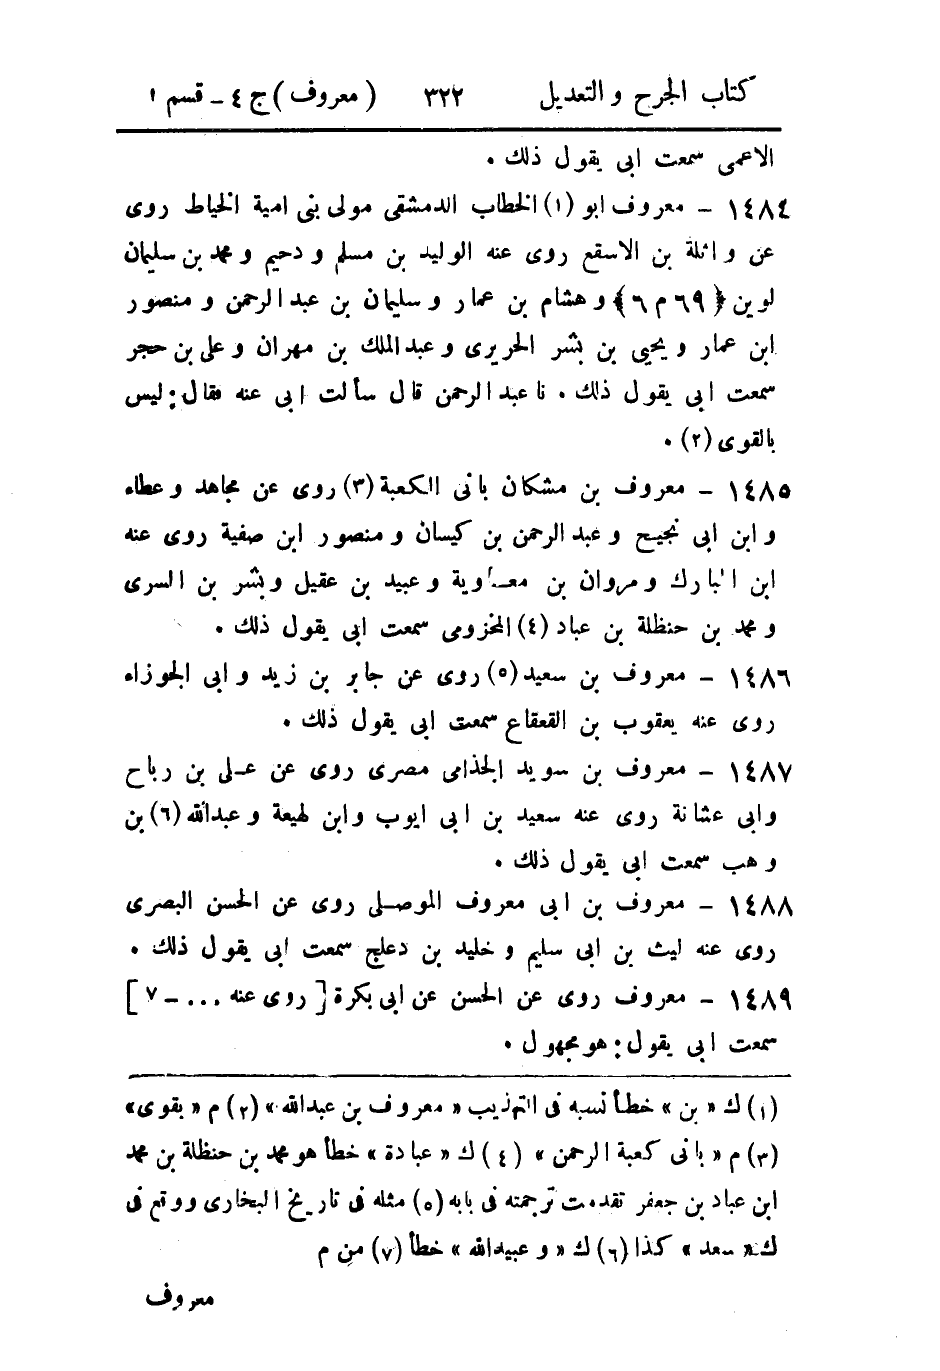 كتاب الجرح و التعديل ٣٢٢ ( معروف ) ج ٤ - قسم ١
الاعمى سمعت ابى يقول ذلك .
١٤٨٤ - معروف ابو (١) الخطاب الدمشقى مولى بنى امية الخياط روى
عن واثلة بن الاسقع روى عنه الوليد بن مسلم و دحيم و محمد بن سليمان
لوين ﴿ ٦٩ م ٦ ﴾ و هشام بن عمار و سليمان بن عبد الرحمن و منصور
ابن عمار و يحيى بن بشر الحريرى و عبد الملك بن مهران و على بن حجر
سمعت ابى يقول ذلك . نا عبد الرحمن قال سألت ابى عنه فقال : ليس
بالقوى (٢) .
١٤٨٥ - معروف بن مشكان بانى الكعبة (٣) روى عن مجاهد و عطاء
و ابن ابى نجيح و عبد الرحمن بن كيسان و منصور ابن صفية روى عنه
ابن المبارك و مروان بن معاوية و عبيد بن عقيل وبشر بن السرى
و محمد بن حنظلة بن عباد (٤) المخزومى سمعت ابى يقول ذلك .
١٤٨٦ - معروف بن سعيد (٥) روى عن جابر بن زيد و ابى الجوزاء
روى عنه يعقوب بن القعقاع سمعت ابى يقول ذلك .
١٤٨٧ - معروف بن سويد الجذامى مصرى روى عن عـلى بن رباح
وابى عشانة روى عنه سعيد بن ابى ايوب وابن لهيعة و عبدالله (٦) بن
وهب سمعت ابى يقول ذلك .
١٤٨٨ - معروف بن ابى معروف الموصـلى روى عن الحسن البصرى
روى عنه ليث بن ابى سليم و خليد بن دعلج سمعت ابى يقول ذلك .
١٤٨٩ - معروف روى عن الحسن عن ابى بكرة [ روى عنه ... - ٧ ]
سمعت ابى يقول : هو مجهول .
(١) ك « بن » خطأ نسبه فى التهذيب « معروف بن عبدالله » (٢) م « بقوى »
(٣) م « بانى كعبة الرحمن » (٤) ك « عبادة » خطأ هو محمد بن حنظلة بن محمد
ابن عباد بن جعفر تقدمت ترجمته فى بابه (٥) مثله فى تاريخ البخارى ووقع فى
ك « سعد » كذا (٦) ك « و عبيدالله » خطأ (٧) من م
معروف